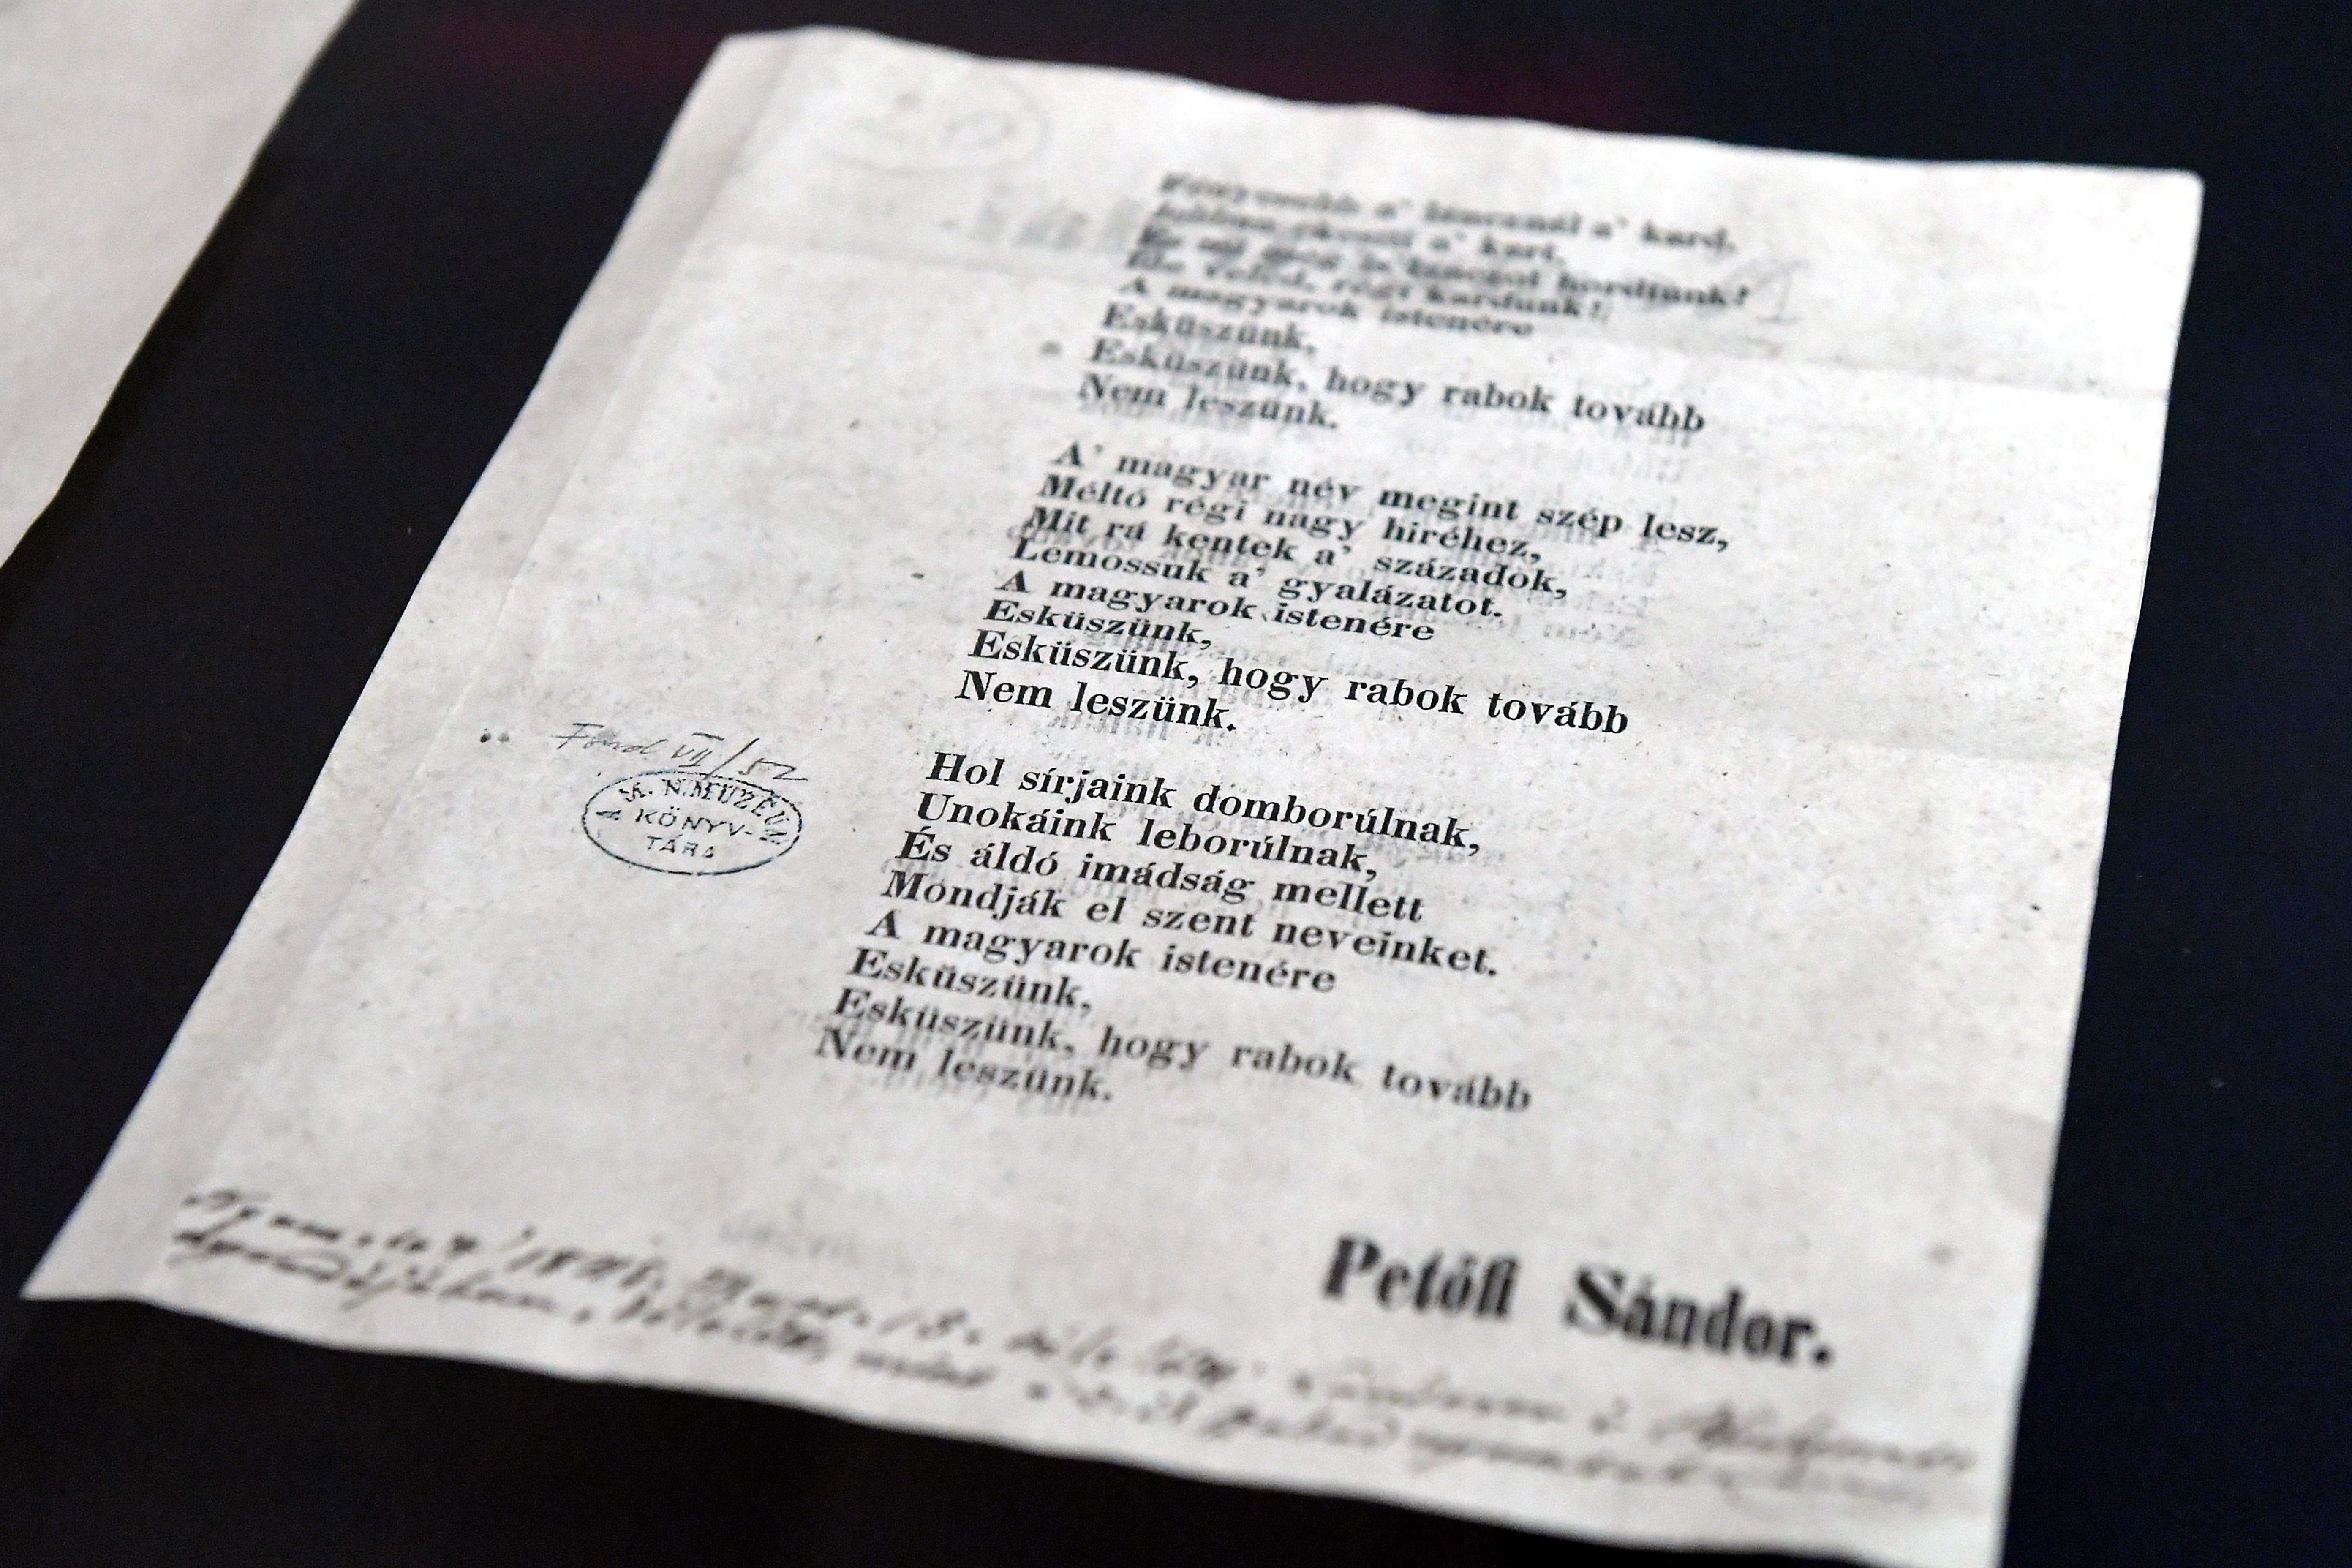 Fényesebb a' láncznál a' kard,
Jobban ékesíti a' kart,
És mi még is lánczot hordtunk!
Ide veled, régi kardunk!
A magyarok istenére
Esküszünk,
Esküszünk, hogy rabok tovább
Nem leszünk.
A' magyar név megint szép lesz,
Méltó régi nagy hiréhez,
Mit rá kentek a' századok,
Lemossuk a' gyalázatot.
A magyarok istenére
Esküszünk,
Esküszünk, hogy rabok tovább
Nem leszünk.
Fond VII/52
A M. N. MUZEUM
KÖNYV-
TÁRA
Hol sírjaink domborúlnak,
Unokáink leborúlnak,
És áldó imádság mellett
Mondják el szent neveinket.
A magyarok istenére
Esküszünk,
Esküszünk, hogy rabok tovább
Nem leszünk.
Petőfi Sándor.